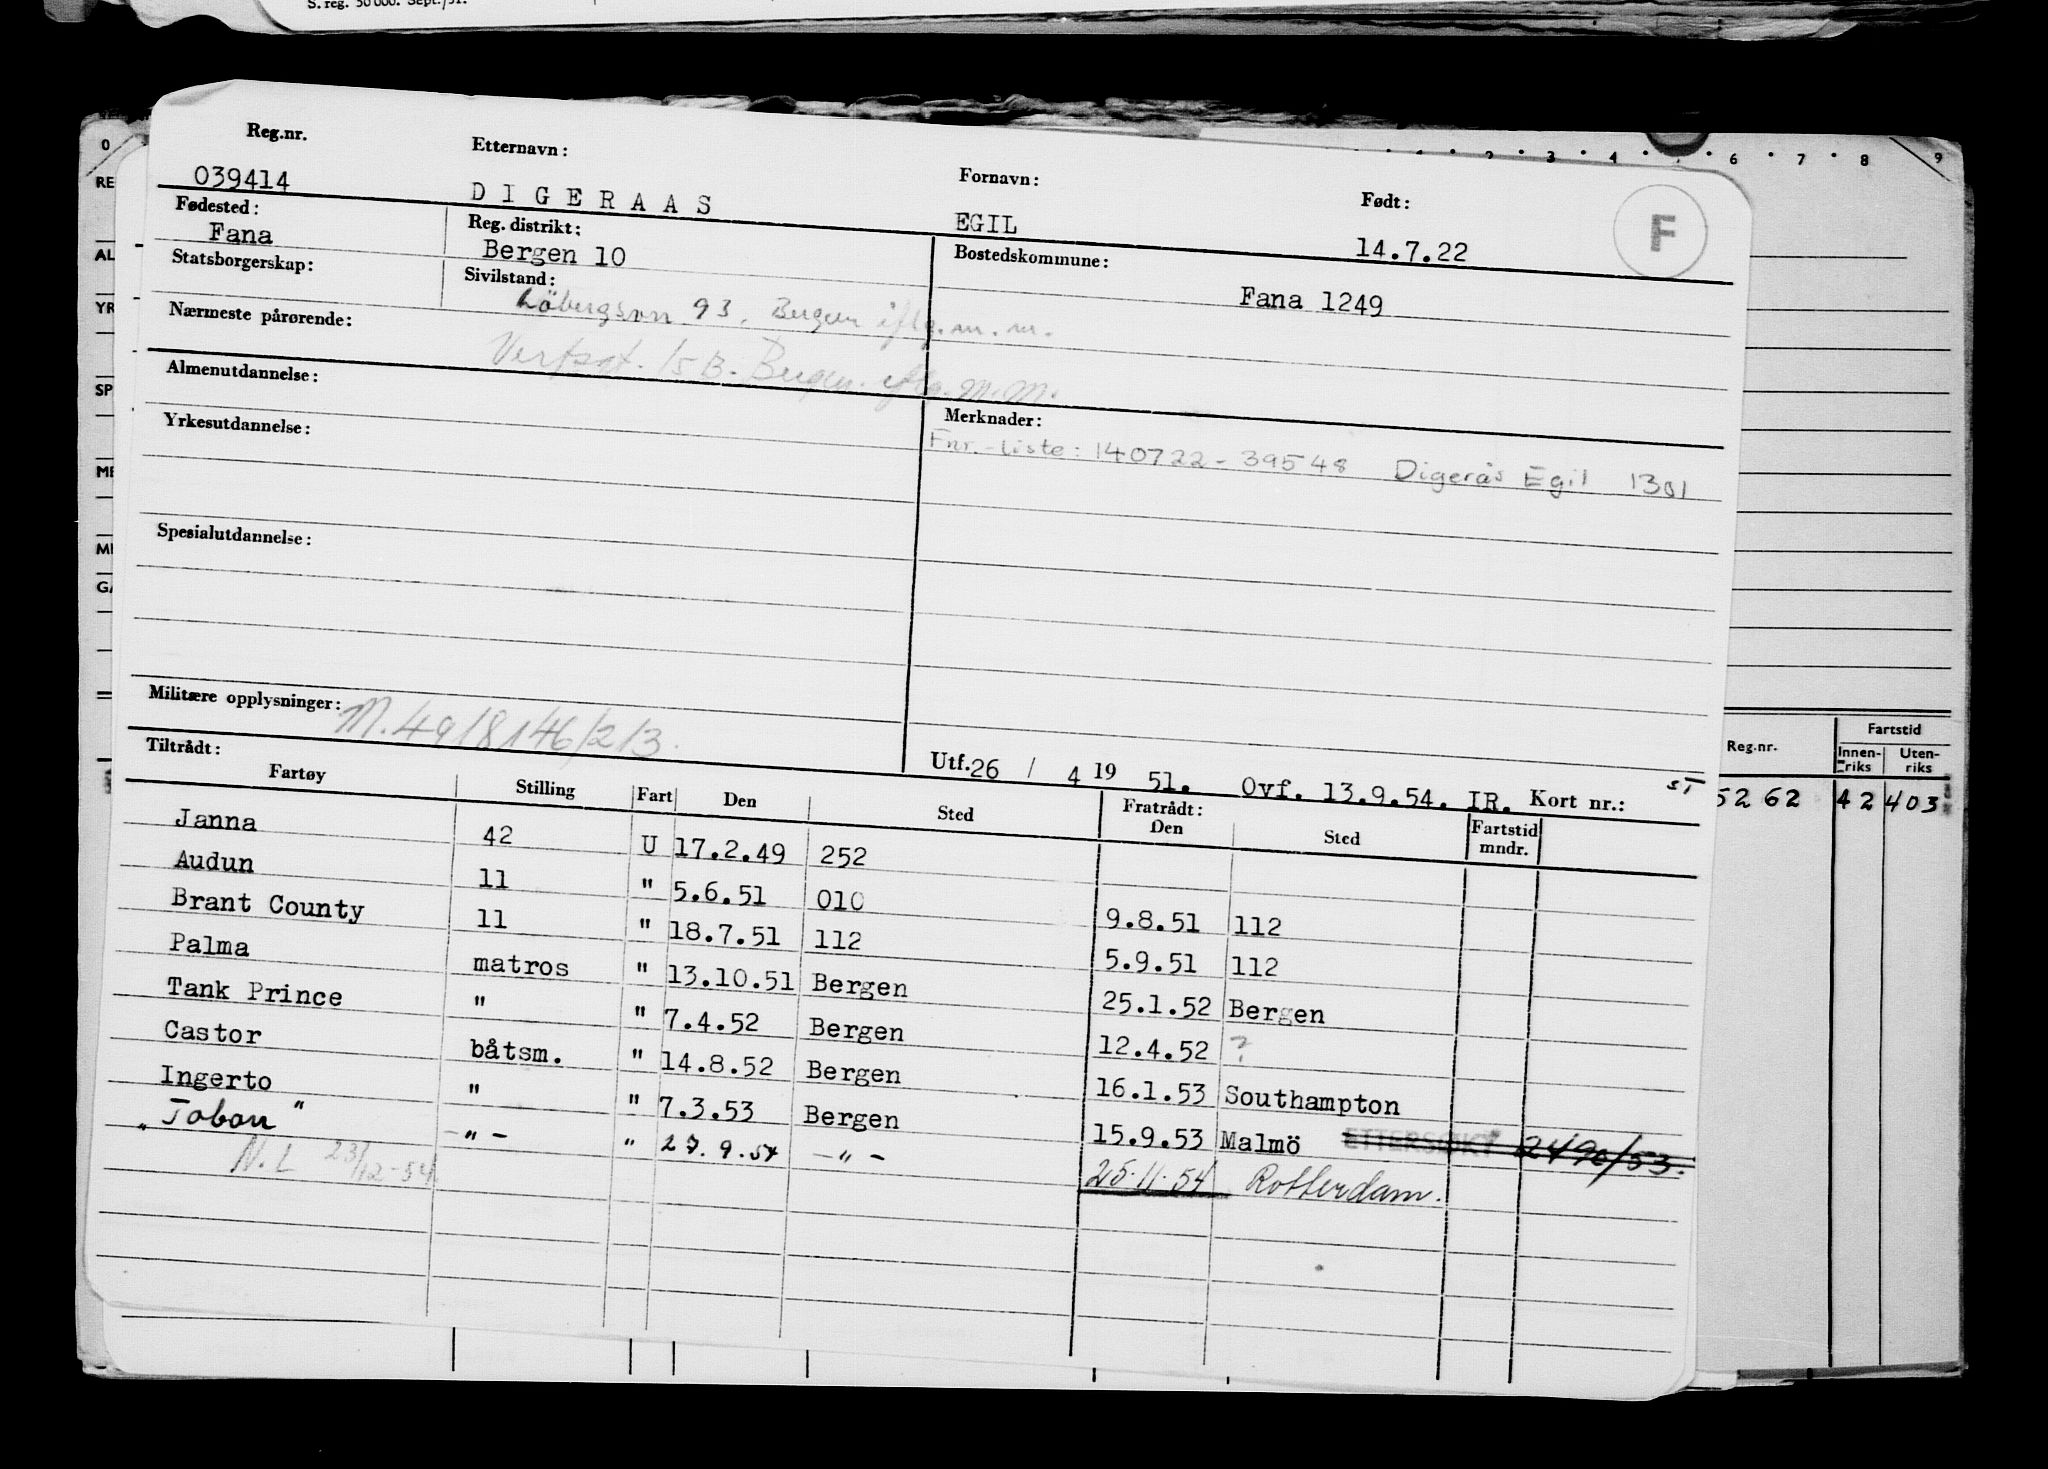 S. reg. 50 000. Sept./51.
0 1 2 3 4 6 7 8 9
Reg.nr. Etternavn: Fornavn: Født:
039414 DIGERAAS EGIL 14.7.22 F
Fødested: Reg. distrikt: Bostedskommune:
Fana Bergen 10 Fana 1249
Statsborgerskap: Sivilstand:
93, Bergen iflg. m.m.
Nærmeste pårørende:
15 B. Bergen. iflg. M.M.
Almenutdannelse: Merknader:
Fnr.-liste: 140722-39548 Digerås Egil 1301
Yrkesutdannelse:
Spesialutdannelse:
Militære opplysninger: M.4918146/2/3.
Utf. 26 / 4 19 51. Ovf. 13.9.54. IR. Kort nr.:
Tiltrådt: Fratrådt:
Fartøy Stilling Fart Den Sted Den Sted Fartstid mndr.
Janna 42 U 17.2.49 252
Audun 11 " 5.6.51 010 9.8.51 112
Brant County 11 " 18.7.51 112 5.9.51 112
Palma matros " 13.10.51 Bergen 25.1.52 Bergen
Tank Prince " " 7.4.52 Bergen 12.4.52 ?
Castor båtsm. " 14.8.52 Bergen 16.1.53 Southampton
Ingerto " " 7.3.53 Bergen 15.9.53 Malmö ETTERSØKT 2490/53.
"Tobon" -"- " 27.9.54 -"- 25.11.54 Rotterdam.
N.L 23/12-54
RE
AL
YR
SP
ME
MI
GA
Reg.nr. Fartstid
Innenriks Utenriks
5262 42 403